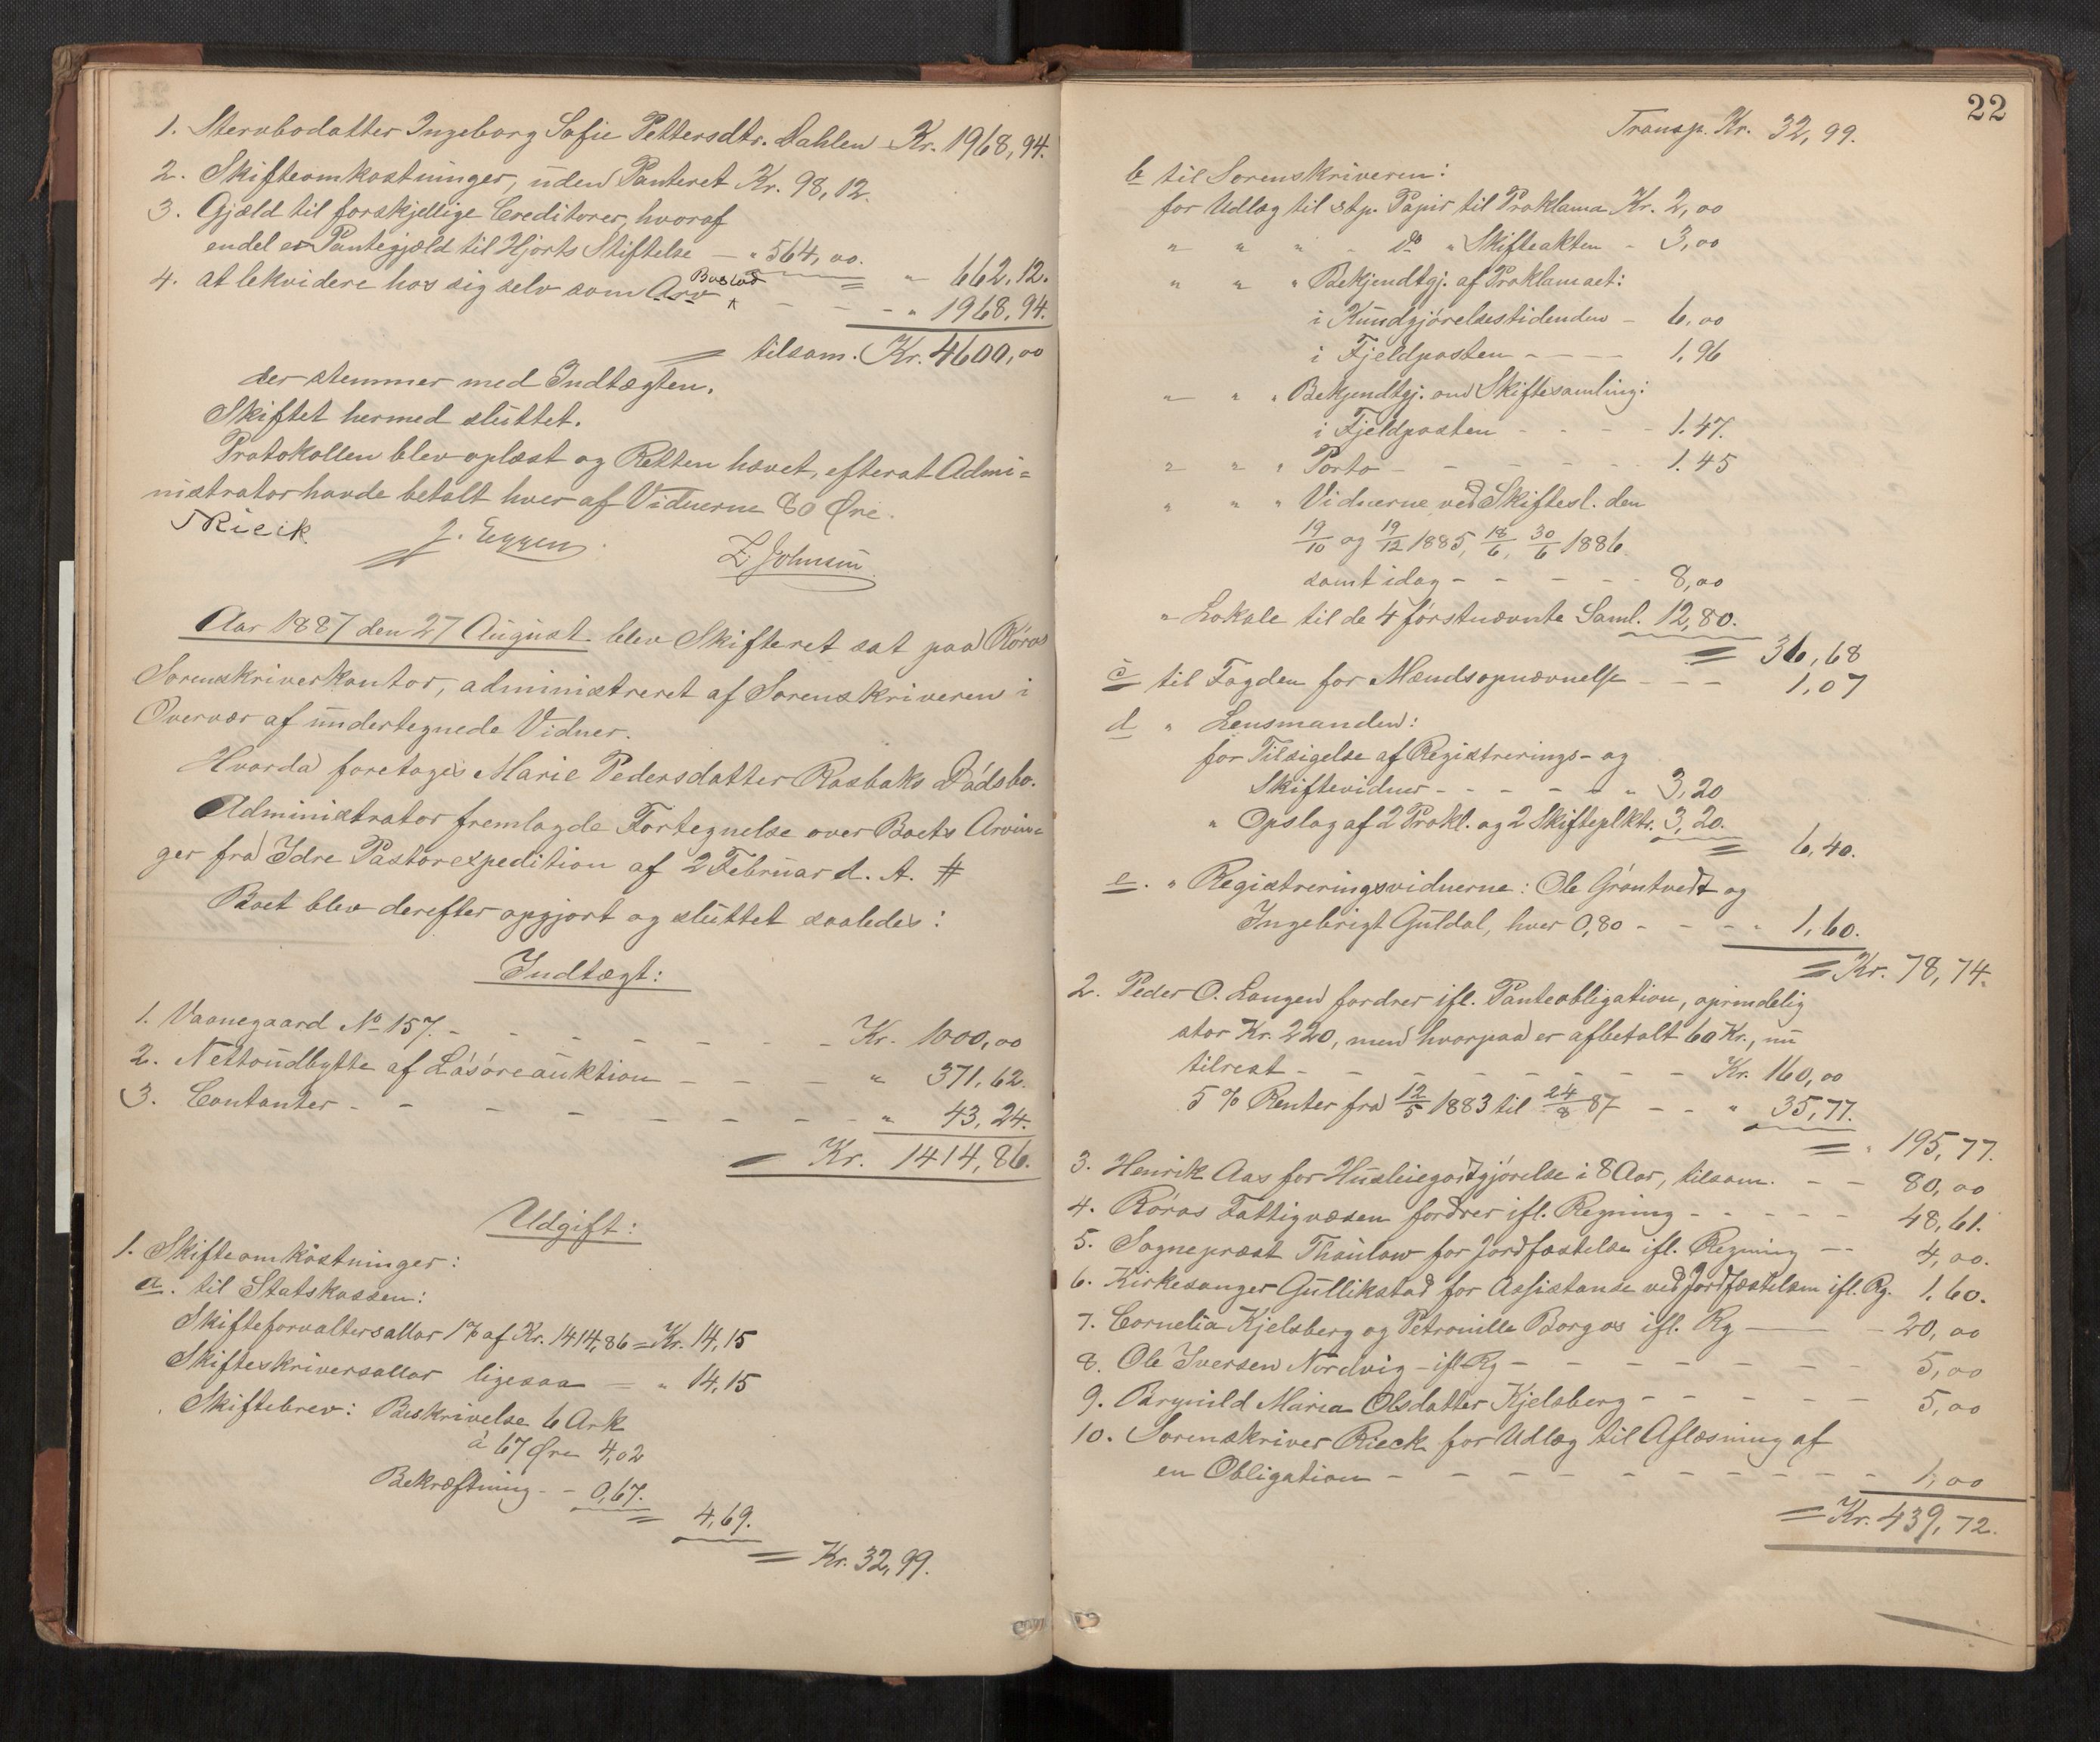 1. Stervbodatter Ingeborg Sofie Pettersdtr. Dahlen Kr. 1968,94.
2. Skifteomkostninger, uden Panteret Kr. 98,12.
3. Gjæld til forskjellige Creditorer, hvoraf
endel er Pantegjæld til Hjorts Stiftelse — " 564,00.
" 662,12.
4. at lekvidere hos sig selv som Arv Boslod - - - " 1968,94.
tilsam. Kr. 4600,00
der stemmer med Indtægten.
Skiftet hermed sluttet.
Protokollen blev oplæst og Retten hævet, efterat Admi=
nistrator havde betalt hver af Vidnerne 80 Øre.
Rieck J. Eggen
Z. Johnsen
Aar 1887 den 27 August blev Skifteret sat paa Röros
Sorenskriverkontor, administreret af Sorenskriveren i
Overvær af undertegnede Vidner.
Hvorda foretoges Marie Pedersdatter Rosbaks Dödsbo.
Administrator fremlagde Fortegnelse over Boets Arvin=
ger fra Idre Pastorexpedition af 2 Februar d. A. #
Boet blev derefter opgjort og sluttet saaledes:
Indtægt:
1. Vaanegaard No 157. - - - - - - Kr. 1000,00
2. Nettoudbytte af Lösöreauktion - - - " 371,62.
3. Contanter - - - - - - - " 43,24.
= Kr. 1414,86.
Udgift:
1. Skifteomkostninger:
a. til Statskassen:
Skifteforvaltersallar 1% af Kr. 1414,86 = Kr. 14,15
Skifteskriversallar ligesaa — " 14,15
Skiftebrev: Beskrivelse 6 Ark
à 67 Øre 4,02
Bekræftning - - 0,67.
= 4,69.
= Kr. 32,99.
22
Transp. Kr. 32,99.
b til Sorenskriveren:
for Udlæg til stp. Papir til Proklama Kr. 2,00
" " " - do " Skifteakten - 3,00
" " " Bekjendtgj. af Proklamaet:
i Kundgjörelsestidenden - 6,00
i Fjeldposten - - - - 1,96
" " " Bekjendtgj. om Skiftesamling:
i Fjeldposten - - - - 1.47.
" " " Porto - - - - - - 1.45
" " " Vidnerne ved Skiftesl. den
19/10 og 19/12 1885, 18/6, 30/6 1886.
samt idag - - - - - 8,00
" Lokale til de 4 förstnævnte Saml. 12,80.
= 36,68
c til Fogden for Mændsopnævnelse - - - 1,07
d " Lensmanden:
for Tilsigelse af Registrerings- og
Skiftevidner - - - - - " 3,20
" Opslag af 2 Prokl. og 2 Skifteplkt. 3,20.
= 6,40.
e. " Registreringsvidnerne: Ole Gröntvedt og
Ingebrigt Guldal, hver 0,80 - - - - 1,60.
= Kr. 78,74.
2. Peder O. Langen fordrer ifl. Panteobligation, oprindelig
stor Kr. 220, men hvorpaa er afbetalt 60 Kr., nu
tilrest - - - - - - - - - Kr. 160,00
5% Renter fra 12/5 1883 til 24/8 87 - - " 35,77.
= " 195,77.
3. Henrik Aas for Husleiegodtgjörelse i 8 Aar, tilsam. - - 80,00
4. Röros Fattigvæsen fordrer ifl. Regning - - - - - 48,61.
5. Sognepræst Thaulow for Jordfæstelse ifl. Regning - - 4,00.
6. Kirkesanger Gullikstad for Assistanse ved Jordfæstelsen ifl. Rg. 1,60.
7. Cornelia Kjelsberg og Petronille Borgos ifl. Rg — - 20,00
8. Ole Iversen Nordvig - ifl. Rg - - - - - - - 5,00
9. Brynild Maria Olsdatter Kjelsberg - - - - - 5,00
10. Sorenskriver Rieck for Udlæg til Aflæsning af
en Obligation - - - - - - - - - - 1,00
= Kr. 439,72.